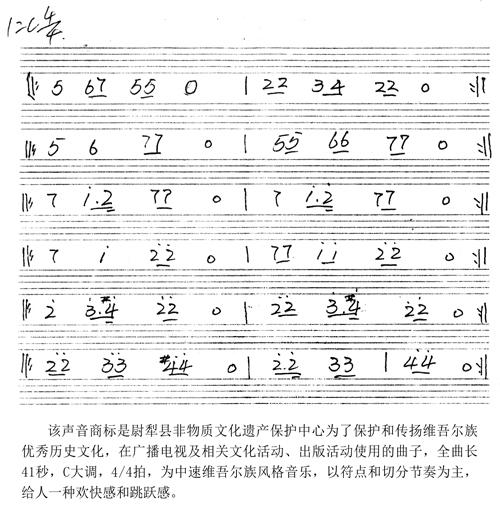 1=C 4/4
‖: 5 67 55 0 | 22 34 22 0 :‖
‖: 5 6 77 0 | 55 66 77 0 :‖
‖: 7 i.2̇ 77 0 | 7 i.2̇ 77 0 :‖
‖: 7 i 2̇2̇ 0 | 77 ii 2̇2̇ 0 :‖
‖: 2̇ 3̇.#4̇ 2̇2̇ 0 | 2̇2̇ 3̇.#4̇ 2̇2̇ 0 :‖
‖: 2̇2̇ 3̇3̇ #4̇4̇ 0 | 2̇2̇ 3̇3̇ | 4̇4̇ 0 :‖
该声音商标是尉犁县非物质文化遗产保护中心为了保护和传扬维吾尔族
优秀历史文化，在广播电视及相关文化活动、出版活动使用的曲子，全曲长
41秒，C大调，4/4拍，为中速维吾尔族风格音乐，以符点和切分节奏为主，
给人一种欢快感和跳跃感。